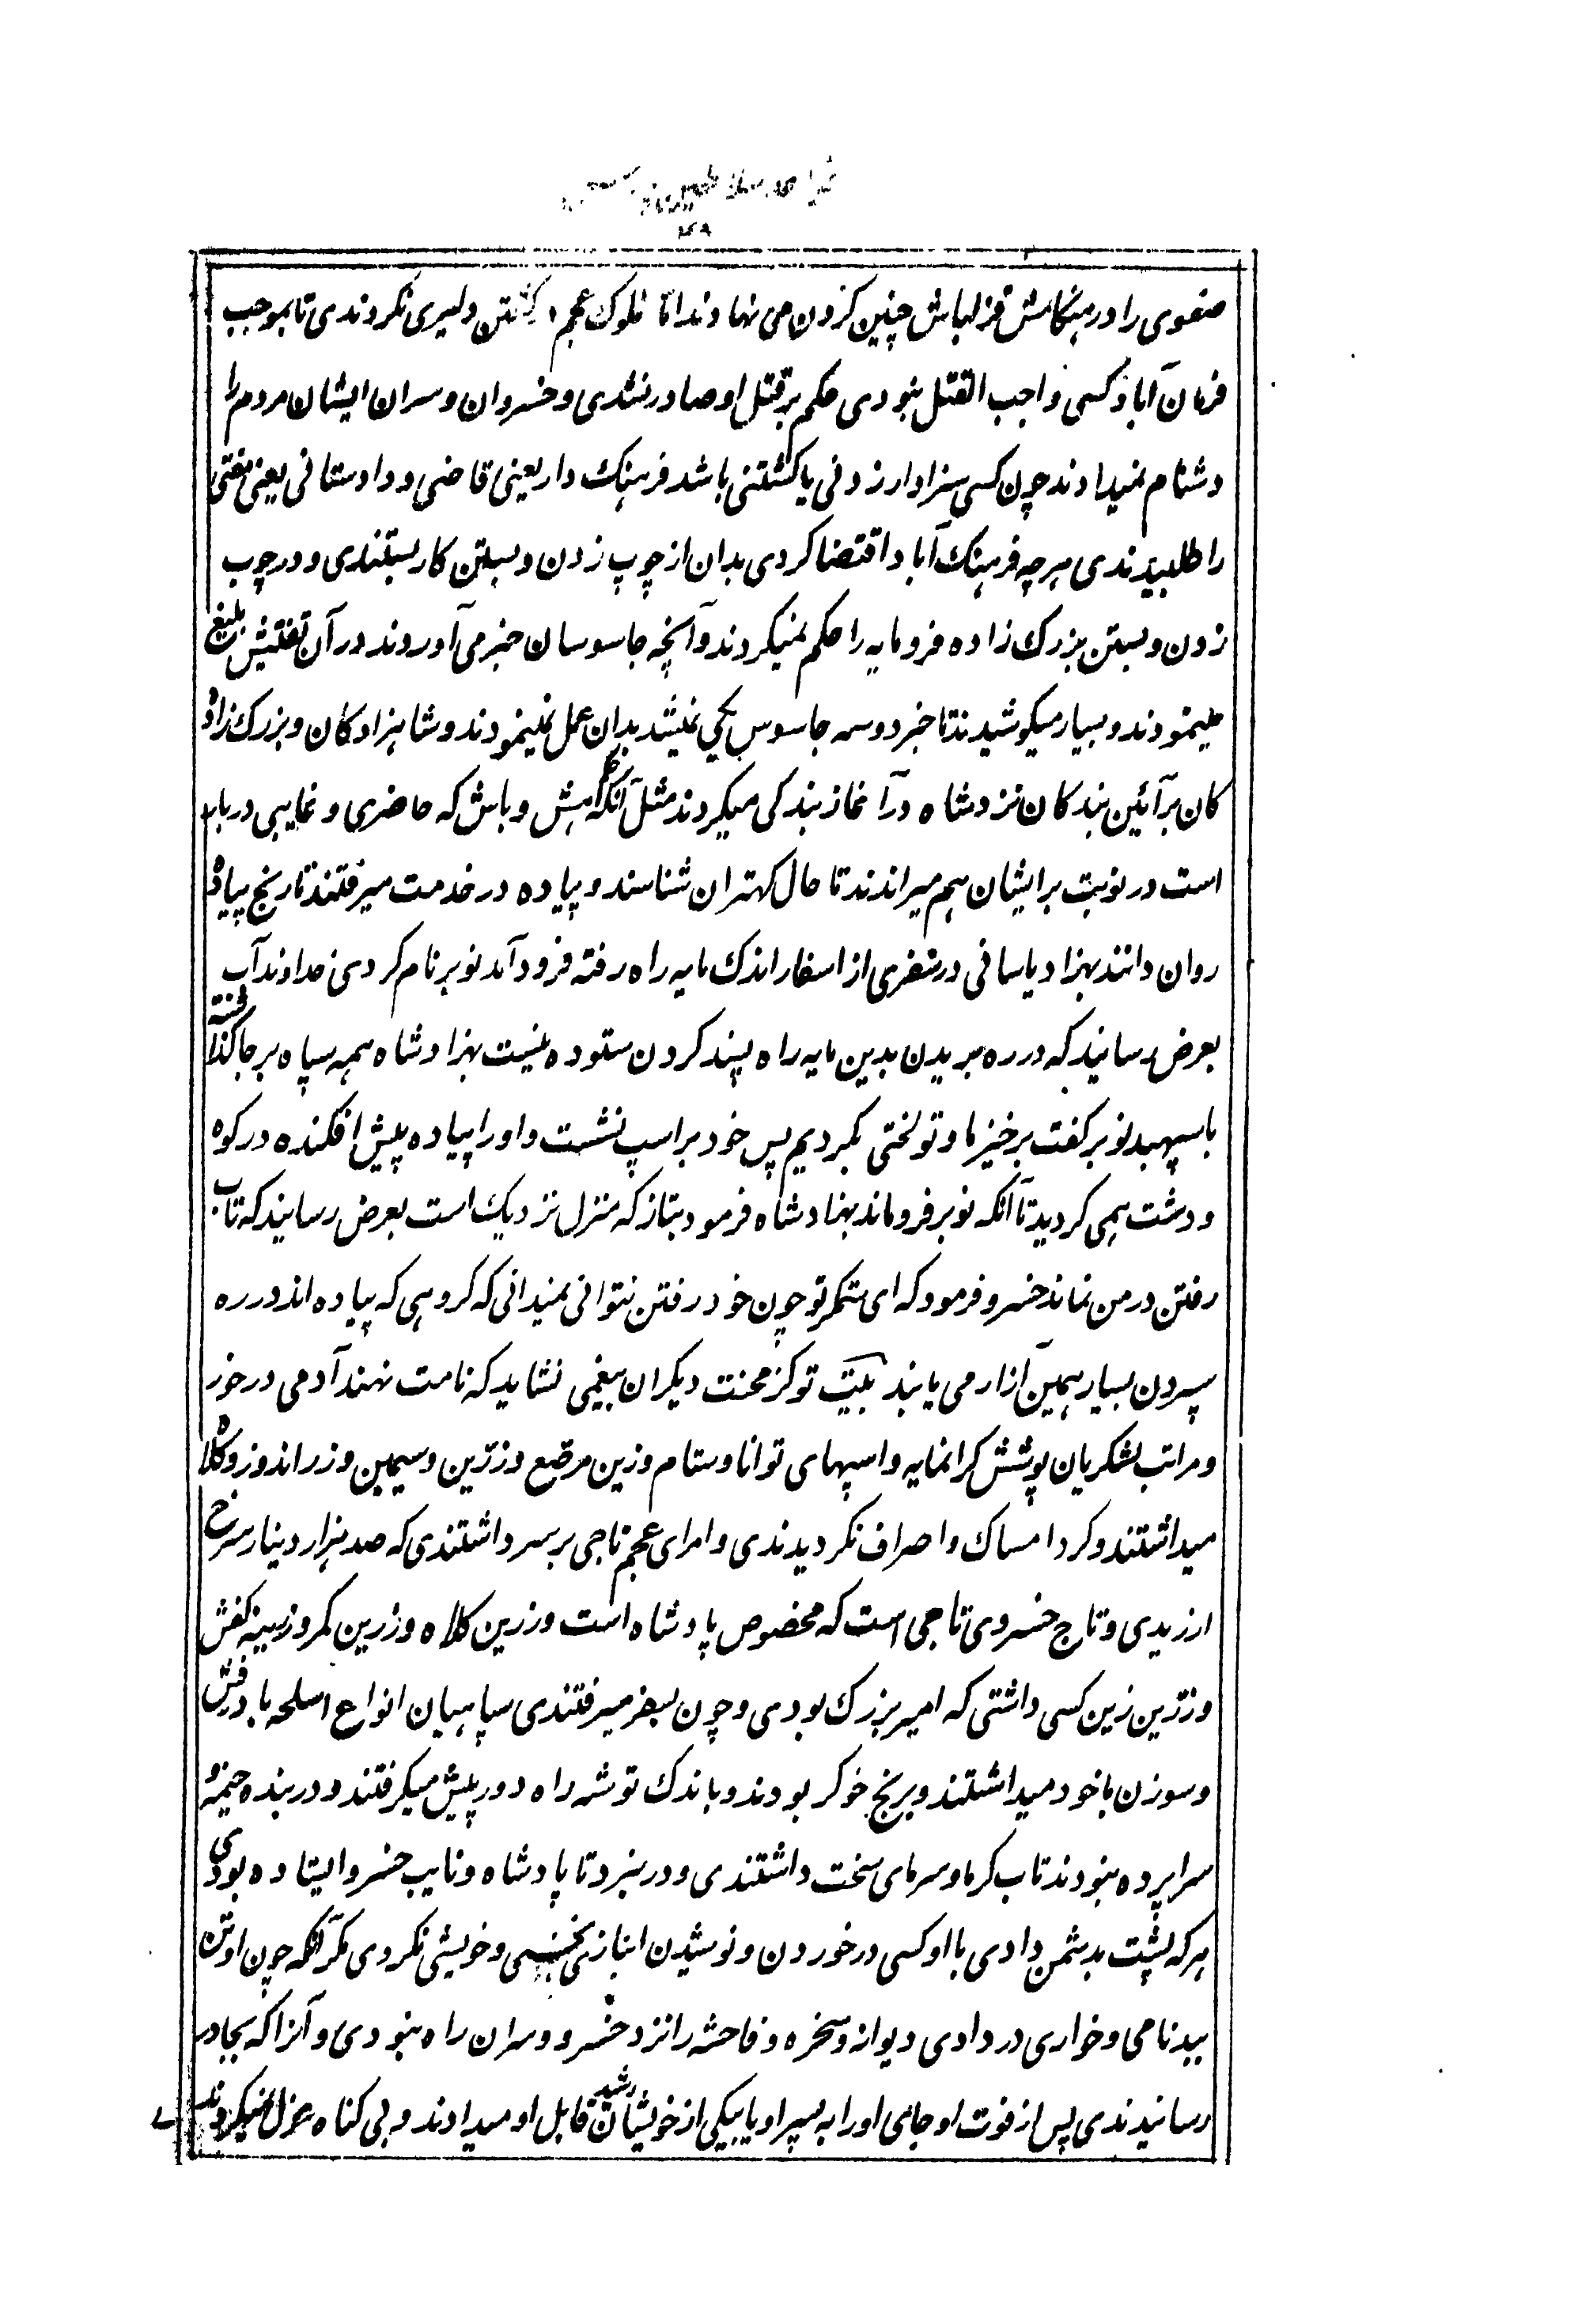 صفوی را در هنگامش قزلباش چنین کردن می نهادند اما ملوک عجم کشتن دلیری نکردندی تا بموجب
فرمان آباد کسی واجب القتل نبودی حکم بر قتل او صادر نشدی و خسروان و سران ایشان مردم را
دشنام نمیدادند چون کسی سزاوار زدنی یا کشتنی باشد فرهنک دار یعنی قاضی و دادستانی یعنی مفتی
را طلبیدندی هرچه فرهنک آباد اقتضا کردی بدان از چوب زدن و بستن کار بستندی و در چوب
زدن و بستن بزرک زاده فرومایه را حکم نمیکردند و آنچه جاسوسان خبر می آوردند در آن تفتیش بلیغ
مینمودند و بسیار میکوشیدند تا خبر دو سه جاسوس یکی نمیشد بدان عمل نمینمودند و شاهزادکان و بزرک زاد
کان بر آئین بندکان نزد شاه در آغاز بندکی میکردند مثل آنکه امش و باش که حاضری و غایبی دربار
است در نوبت بر ایشان هم میراندند تا حال کهتران شناسند و پیاده در خدمت میرفتند تا رنج پیاده
روان دانند بهزاد یاسانی در سفری از اسفار اندک مایه راه رفته فرود آمد نوبر نام کردی خداوند آب
بعرض رسانید که در ره بریدن بدین مایه راه پسند کردن ستوده نیست بهزاد شاه همه سپاه بر جا کذاشته
با سپهبد نوبر کفت برخیز ما و تو لختی بکردیم پس خود بر اسپ نشست و او را پیاده پیش افکنده در کوه
و دشت همی کردید تا آنکه نوبر فروماند بهزاد شاه فرمود بتاز که منزل نزدیک است بعرض رسانید که تاب
رفتن در من نماند خسرو فرمود که ای ستمکر تو چون خود رفتن نتوانی نمیدانی که کروهی که پیاده اند در ره
سپردن بسیار همین آزار می یابند بیت تو کز محنت دیکران بیغمی نشاید که نامت نهند آدمی در خور
و مراتب لشکریان پوشش کرانمایه و اسپهای توانا و ستام و زین مرصع و زرین و سیمین و زر اندوز و کلاه
میداشتند و کرد امساک و اصراف نکردیدندی و امرای عجم تاجی بر سر داشتندی که صد هزار دینار سرخ
ارزیدی و تاج خسروی تاجی است که مخصوص پادشاه است و زرین کلاه و زرین کمر و زرینه کفش
و زرین زین کسی داشتی که امیر بزرک بودی و چون بسفر میرفتندی سپاهیان انواع اسلحه با درفش
و سوزن با خود میداشتند و برنج خوکر بودند و باندک توشه راه دور پیش میکرفتند و دربنده خیمه و
سراپرده نبودند تاب کرما و سرمای سخت داشتندی و در نبرد تا پادشاه و نایب خسرو ایستاده بودی
هر که پشت بدشمن دادی با او کسی در خوردن و نوشیدن انبازی نجستی و خویشی نکردی مکر آنکه چون او تن
ببدنامی و خواری در دادی دیوانه و سخره و فاحشه را نزد خسرو و سران راه نبودی و آنرا که بجا در
رسانیدندی پس از فوت او جای او را به پسر او یا بیکی از خویشان رشید قابل او میدادند و بی کناه عزل نمیکردند